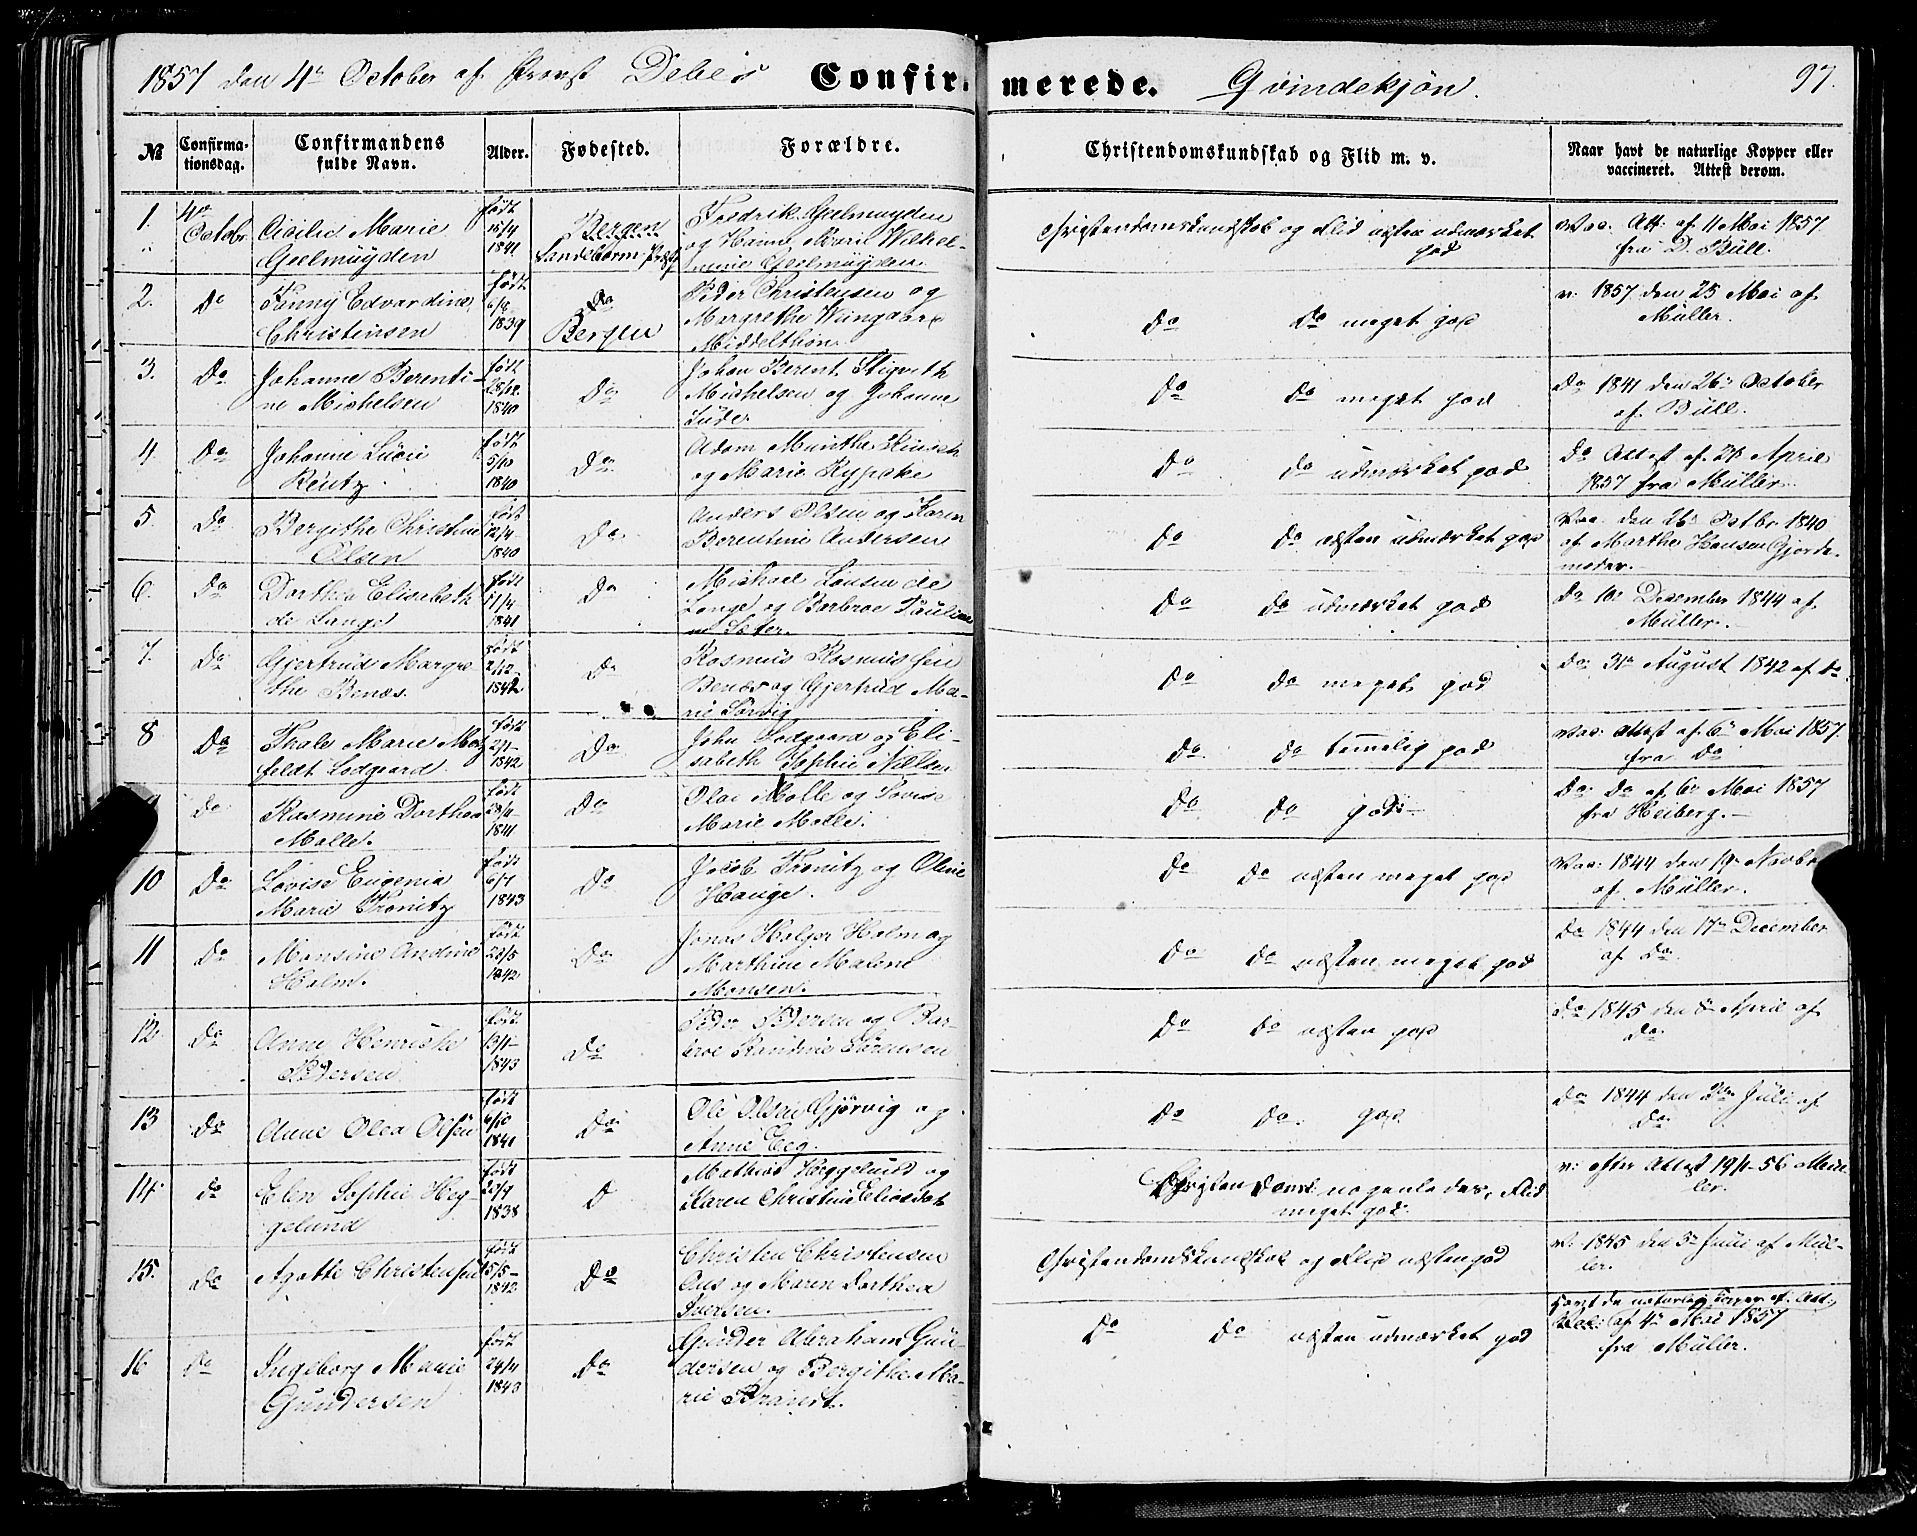 1857 den 4de October af Provst Debes Confirmerede. Qvindekjön. 97.
№ Confirmationsdag. Confirmandens fulde Navn. Alder. Fødested. Forældre. Christendomskundskab og Flid m. v. Naar havt de naturlige Kopper eller vaccineret. Attest derom.
1. 4de Octobr Cicilie Marie Geelmuyden født 15/4 1841 Bergen Fredrik Geelmuyden og Hanne Marie Wilhelmine Geelmuyden. Christendomskundskab og Flid næsten udmærket god Vac. Att. af 11 Mai 1857 fra D. Büll.
2. Do Fanny Edvardine Christensen født 6/8 1839 Do Bergen Peder Christensen og Margrethe Wingaard Middelthon. Do Do meget god v. 1857 den 25 Mai af Müller.
3. Do Johanne Berentine Michelsen født 28/12 1840 Do Johan Berent Michelsen og Johanne Lüder. Do Do meget god Do 1841 den 26de October af Büll.
4. Do Johanne Reutz født 5/10 1840 Do Adam Munthe og Marie Kypeke Do Do udmærket god Do Attest af 28 April 1857 fra Müller.
5. Do Bergithe Christine Olsen født 12/4 1840 Do Anders Olsen og Karen Berentine Andersen Do Do næsten udmærket god Vac. den 26 Octbr 1840 af Marthe Hansen Gjordemoder.
6. Do Dorthea Elisebeth de Lange født 11/4 1841 Do Michael Lange og Barbroe Pauline Sæter. Do Do udmærket god Do 10 December 1844 af Müller.
7. Do Gjertrud Margrethe Benæs. født 2/12 1842 Do Rasmus Rasmussen Benæs og Gjertrud Marie Sørvig Do Do meget god Do 31te August 1842 af Do
8 Do Thale Marie Lodgaard født 1842 Do John Lodgaard og Elisabeth Sophie Nilsen Do Do temelig god Vac: Attest af 6te Mai 1857. fra Do
Do Rasmine Dorthea Malle. født 1841 Do Olai Malle og Lovise Marie Malle. Do Do god Do: Do af 6te Mai 1857 fra Heiberg.
10 Do Lovise Eugenia Marie Tronitz født 6/7 1843 Do Jacob Tronitz og Oline Hauge. Do Do næsten meget god Vac: 1844 den Novbr af Müller.
11 Do Monsine Andrine Holm. født 28/5 1842 Do Jonas Holger Holm og Marthine Malene Monsen. Do Do næsten meget god Do 1844 den 17de December af Do
12. Do Anne Henricke Pedersen født 13/1 1843 Do Peder Pedersen og Barbroe Randine Sörensen Do Do næsten god Do 1845 den 8de April af Do
13 Do Anne Olea Olsen født 6/10 1841 Do Ole Olsen Gjörvig og Anne Eeg. Do Do god Do 1844 den 2den Juli af Do
14. Do Elen Sophie Heggelund født 1838 D Mathias Heggelund og Karen Christine Christendomsk nogenledes, Flid meget god. v: efter Attest 19/1-56 Müller.
15. Do Agathe Christensen født 15/5 1842 Do Christen Christensen Aas og Maren Dorthea Iversen. Christendomskundskab og Flid næsten god v: 1845 den 5te Juli af Müller.
16 Do Ingeborg Marie Gundersen født 24/4 1843 Do Gunder Abraham Gundersen og Bergithe Marie Brandt. Do Do næsten udmærket god Havt de naturlige Kopper ef. Att. af 4de Mai 1857 fra Müller.